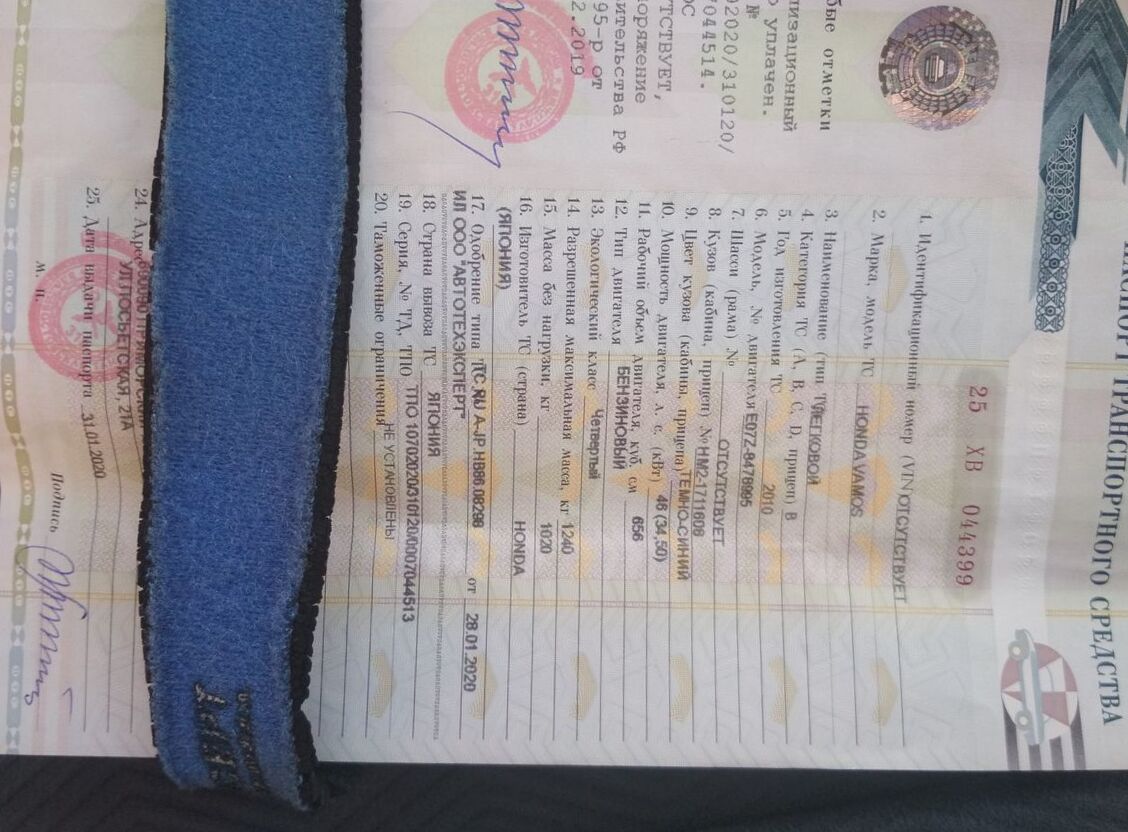 ПАСПОРТ ТРАНСПОРТНОГО СРЕДСТВА
25 ХВ 044399
1. Идентификационный номер (VIN) ОТСУТСТВУЕТ
2. Марка, модель ТС HONDA VAMOS
3. Наименование (тип ТС) ЛЕГКОВОЙ
4. Категория ТС (A, B, C, D, прицеп) B
5. Год изготовления ТС 2010
6. Модель, № двигателя E07Z-8476995
7. Шасси (рама) № ОТСУТСТВУЕТ
8. Кузов (кабина, прицеп) № HM2-1711608
9. Цвет кузова (кабины, прицепа) ТЕМНО-СИНИЙ
10. Мощность двигателя, л. с. (кВт) 46 (34,50)
11. Рабочий объем двигателя, куб. см 656
12. Тип двигателя БЕНЗИНОВЫЙ
13. Экологический класс Четвертый
14. Разрешенная максимальная масса, кг 1240
15. Масса без нагрузки, кг 1020
16. Изготовитель ТС (страна) HONDA
(ЯПОНИЯ)
17. Одобрение типа ТС RU А-JP.НВ86.08296 от 28.01.2020
ИЛ ООО "АВТОТЕХЭКСПЕРТ"
18. Страна вывоза ТС ЯПОНИЯ
19. Серия, № ТД, ТПО ТПО 10702020/310120/0007044513
20. Таможенные ограничения НЕ УСТАНОВЛЕНЫ
24. Адрес 690090 ПРИМОРСКИЙ
УЛ ПОСЬЕТСКАЯ, 21А
25. Дата выдачи паспорта 31.01.2020
М. п.
Подпись
бые отметки
лизационный
уплачен.
№
02020/310120/
7044514.
ОС
ТСТВУЕТ,
оряжение
ительства РФ
95-р от
2.2019